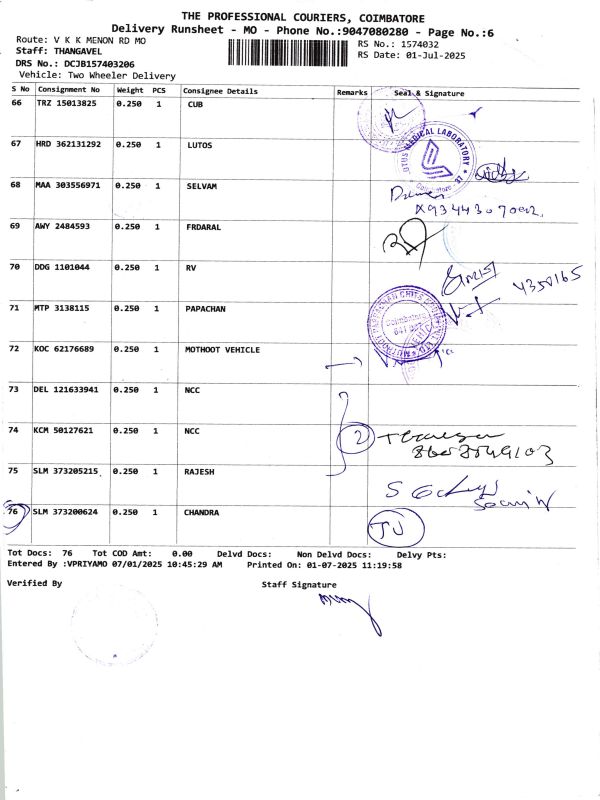 THE PROFESSIONAL COURIERS, COIMBATORE
Delivery Runsheet - MO - Phone No.:9047080280 - Page No.:6
Route: V K K MENON RD MO
RS No.: 1574032
Staff: THANGAVEL
RS Date: 01-Jul-2025
DRS No.: DCJB157403206
Vehicle: Two Wheeler Delivery
S No Consignment No Weight PCS Consignee Details Remarks Seal & Signature
66 TRZ 15013825 0.250 1 CUB
67 HRD 362131292 0.250 1 LUTOS
LOTUS MEDICAL LABORATORY
Coimbatore
68 MAA 303556971 0.250 1 SELVAM
69 AWY 2484593 0.250 1 FRDARAL
70 DDG 1101044 0.250 1 RV
4350165
71 MTP 3138115 0.250 1 PAPACHAN
Coimbatore
72 KOC 62176689 0.250 1 MOTHOOT VEHICLE
73 DEL 121633941 0.250 1 NCC
74 KCM 50127621 0.250 1 NCC
2
75 SLM 373205215 0.250 1 RAJESH
76 SLM 373200624 0.250 1 CHANDRA
Tot Docs: 76 Tot COD Amt: 0.00 Delvd Docs: Non Delvd Docs: Delvy Pts:
Entered By :VPRIYAMO 07/01/2025 10:45:29 AM Printed On: 01-07-2025 11:19:58
Verified By Staff Signature